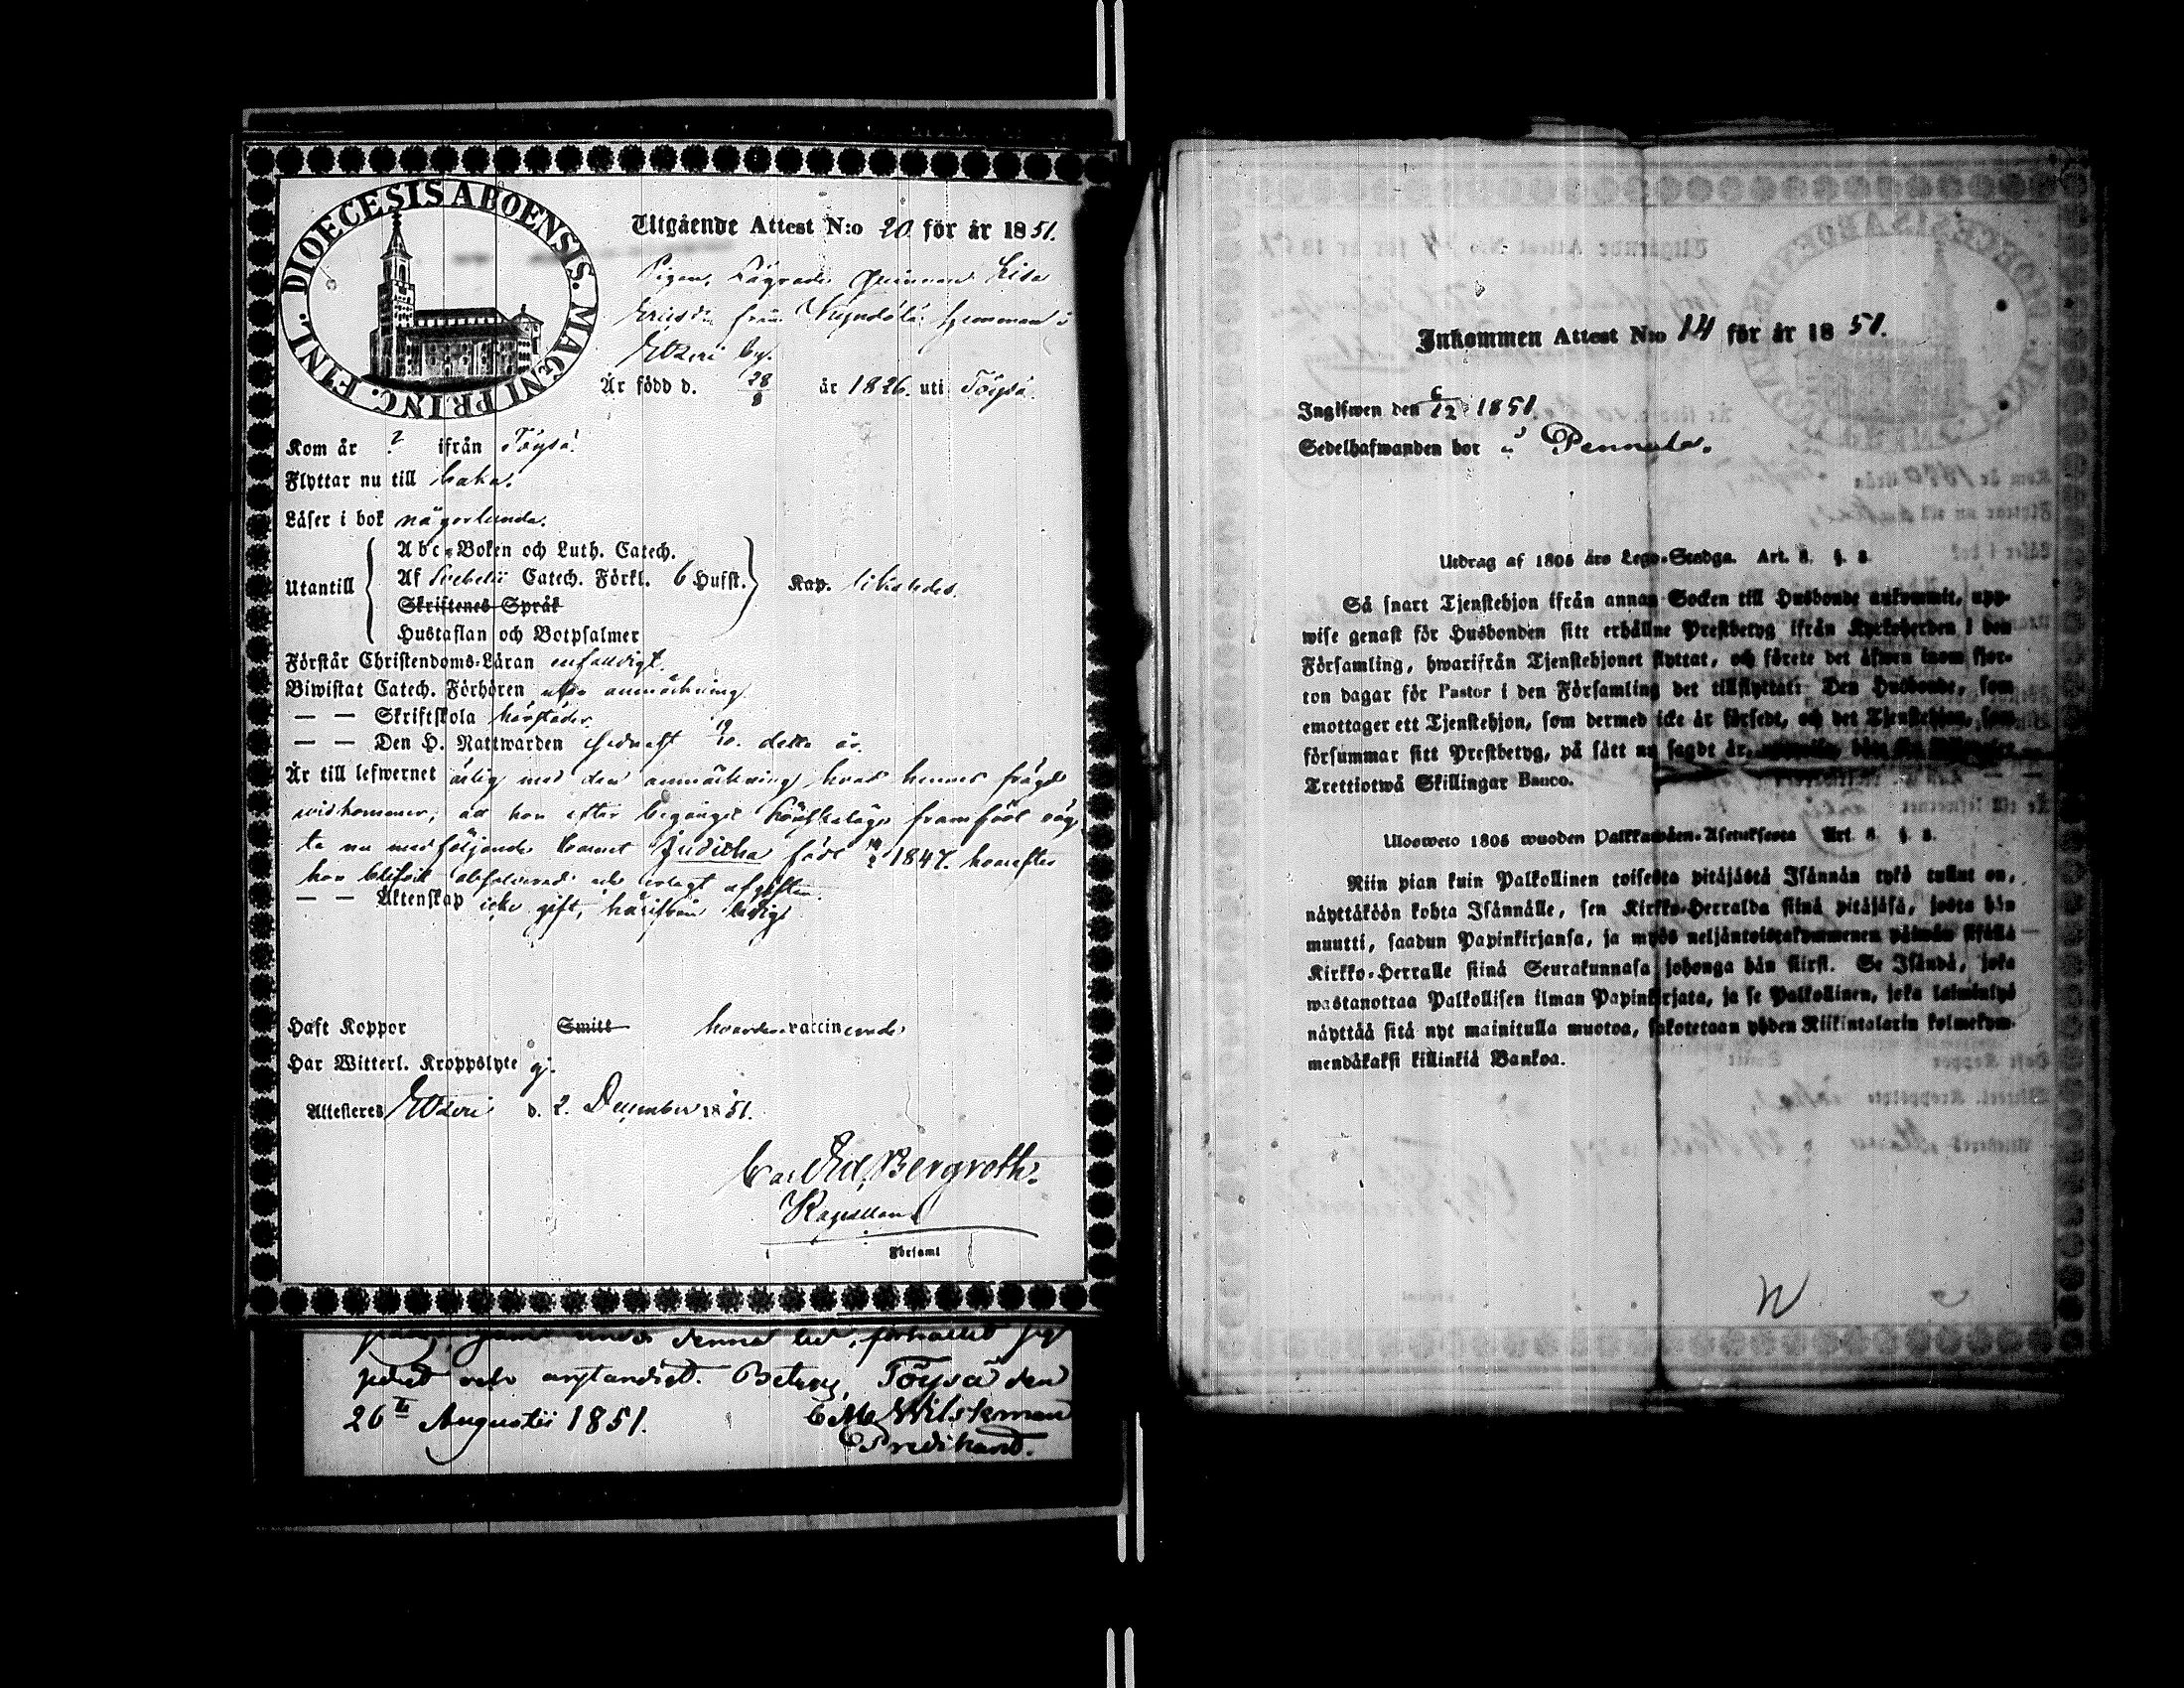 DIOECESIS ABOENSIS. MAGNI PRINC. FINL.
Utgående Attest N:o 20 för år 1851.
Pigan, Lägrade Qvinnan Lisa
Ericsdr från hemman i
Etseri by.
Är född d. 28/8 år 1826. uti Töysä.
Kom år ? ifrån Töysä.
Flyttar nu till baka.
Läser i bok någorlunda.
Utantill
Abc-Boken och Luth. Catech.
Af Svebelii Catech. Förkl. 6 Hufst. Kap. likaledes.
Skriftenes Språk
Hustaflan och Botpsalmer
Förstår Christendoms-Läran enfaldigt.
Biwistat Catech. Förhören utan anmärkning
— — Skriftskola härstädes.
— — Den H. Nattwarden sednast 19/10. detta år.
Är till lefwernet ärlig med den anmärkning hvad hennes frägd
widkommer, att hon efter begånget framfödt oäg-
ta nu medföljande barnet Juditha född 14/2 1847. hvarefter
hon blifvit absolverad och erlagt afgiften.
— — Äktenskap icke gift, härifrån ledig
Haft Koppor Smitt vaccinerade
Har Witterl. Kroppslyte ej.
Attesteras Etseri d. 2. December 1851.
Carl Ed. Bergroth.
Kapellan
Församl
denna tid, förhållit sig
och anständigt. Betyg. Töysä den
26 Augustii 1851. C M Wilskman
Predikant.
Inkommen Attest N:o 14 för år 1851.
Ingifwen den 6/12 1851.
Sedelhafwanden bor å Pennala.
Utdrag af 1805 års Lego-Stadga. Art. 8. §. 8.
Så snart Tjenstehjon ifrån annan Socken till Husbonde ankommit, upp-
wise genast för Husbonden sitt erhållne Prestbetyg ifrån Kyrkoherden i den
Församling, hwarifrån Tjenstehjonet flyttat, och förete det äfwen inom fjor-
ton dagar för Pastor i den Församling det tillflyttat: Den Husbonde, som
emottager ett Tjenstehjon, som dermed icke är försedt, och det Tjenstehjon, som
försummar sitt Prestbetyg, på sätt nu sagdt är,
Trettiotwå Skillingar Banco.
Ulosweto 1805 wuoden Palkkawäen-Asetuksesta Art. 8. §. 8.
Niin pian kuin Palkollinen toisesta pitäjästä Isännän tykö tullut on,
näyttäköön kohta Isännälle, sen Kirkko-Herralda siinä pitäjäsä, josta hän
muutti, saadun Papinkirjansa, ja myös neljäntoistakymmenen päiwän sisällä
Kirkko-Herralle siinä Seurakunnasa johonga hän siirsi. Se Isändä, joka
wastanottaa Palkollisen ilman Papinkirjata, ja se Palkollinen, joka laiminlyö
näyttää sitä nyt mainitulla muotoa, sakotetaan yhden Riikintalarin kolmekym-
mendäkaksi killinkiä Bankoa.